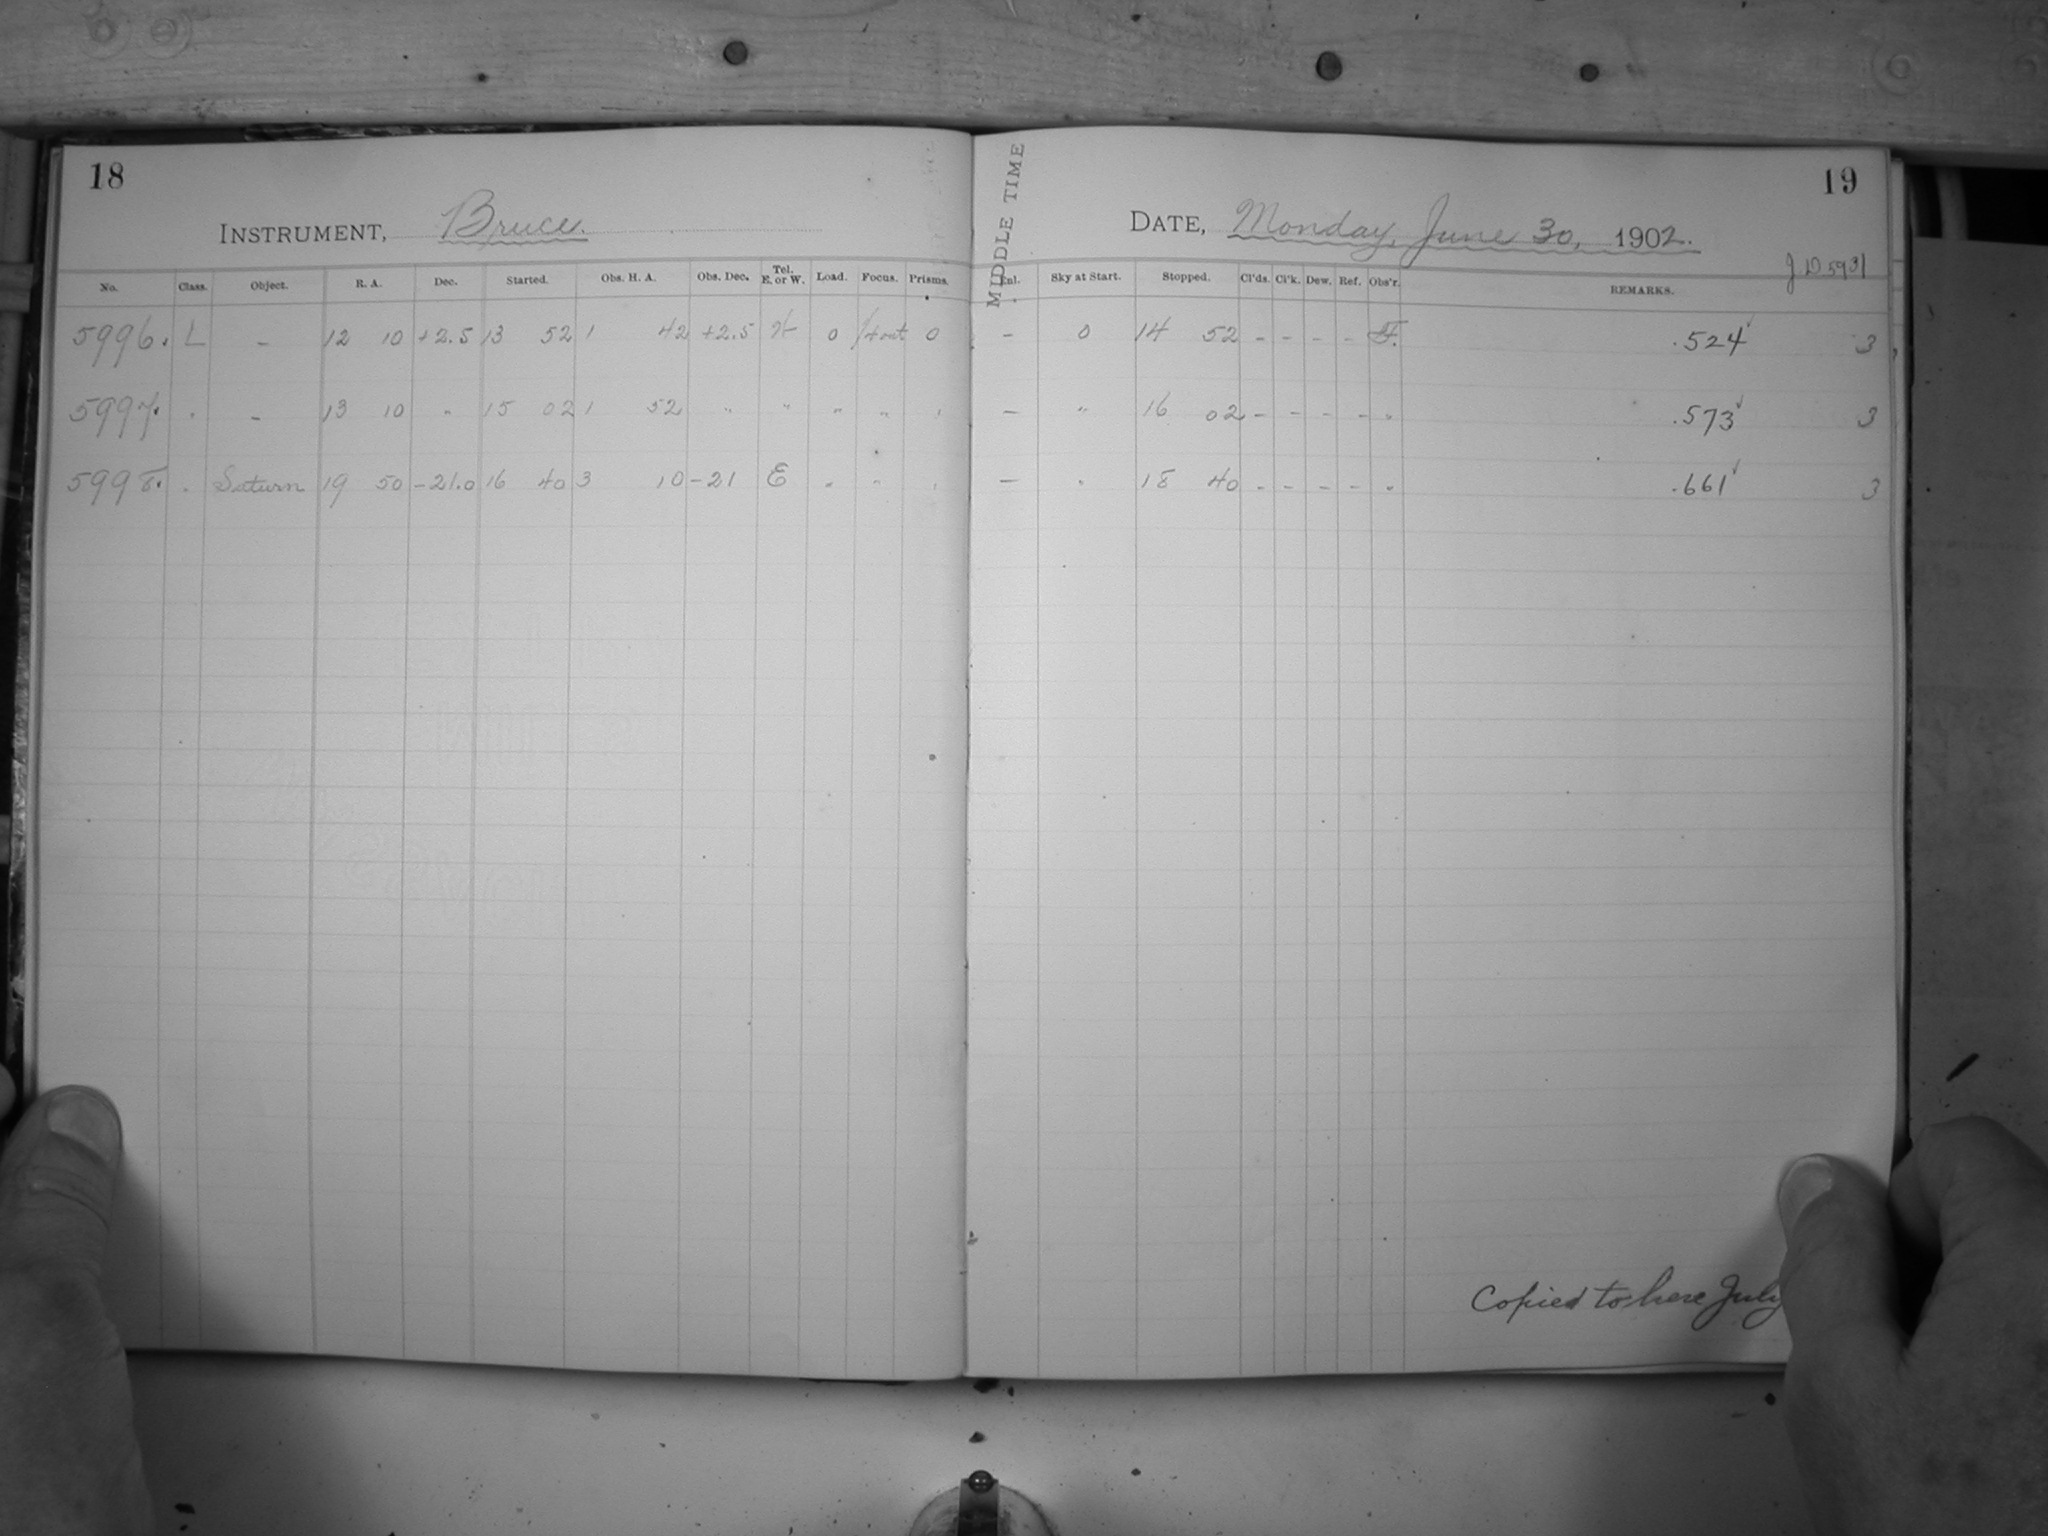 18
INSTRUMENT, Bruce.
No. Class. Object. R. A. Dec. Started. Obs. H. A. Obs. Dec. Tel. E. or W. Load. Focus. Prisms.
5996. L – 12 10 +2.5 13 52 1 42 +2.5 W 0 14 out 0
5997. " – 13 10 " 15 02 1 52 " " " " "
5998. " Saturn 19 50 -21.0 16 40 3 10 -21 E " " "
MIDDLE TIME
19
DATE, Monday, June 30, 1902.
J D 5931
Enl. Sky at Start. Stopped. Cl'ds. Cl'k. Dew. Ref. Obs'r. REMARKS.
– 0 14 52 – – – – F. .524 3
– " 16 02 – – – – " .573 3
– " 18 40 – – – – " .661 3
Copied to here July